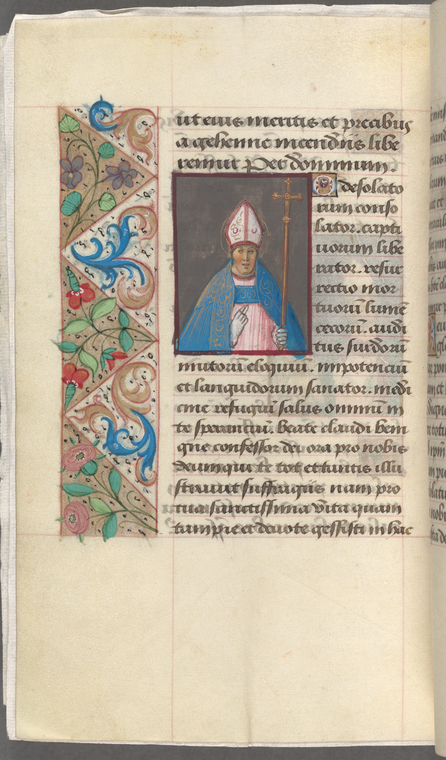 ut eius meritis et precibus
a gehenne incendiis libe
remur Per dominum.
O desolato
rum conso
lator. capti
uorum libe
rator. resur
rectio mor
tuorū lumē
cecorū. audi
tus surdorū
mutorū eloquiū. impotenciū
et languidorum sanator. medi
cine refugiū salus omniū in
te sperantiū. beate claudi beni
gne confessor dei ora pro nobis
Deus qui te tot et tantis illu
stravit suffragiis nam pro
tua sanctissima vita quam
tam pie et devote gessisti in hac